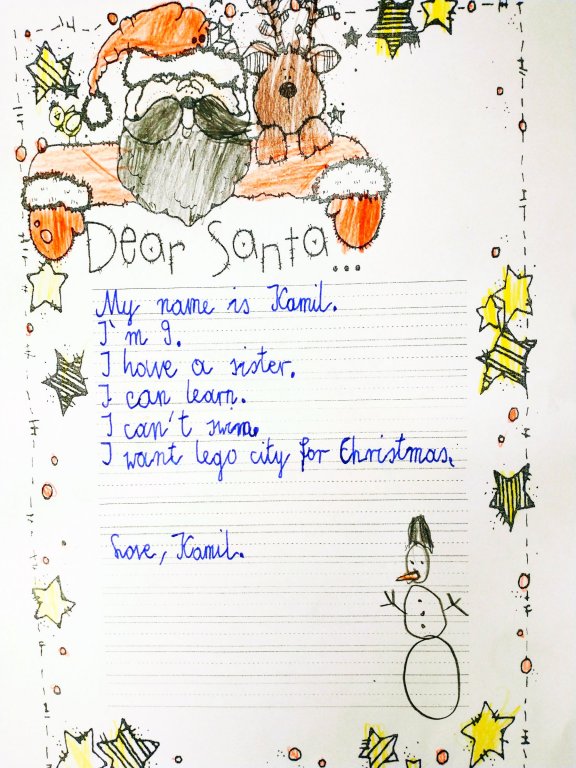 Dear Santa...
My name is Kamil.
I'm 9.
I have a sister.
I can learn.
I can't swim.
I want lego city for Christmas.
Love, Kamil.